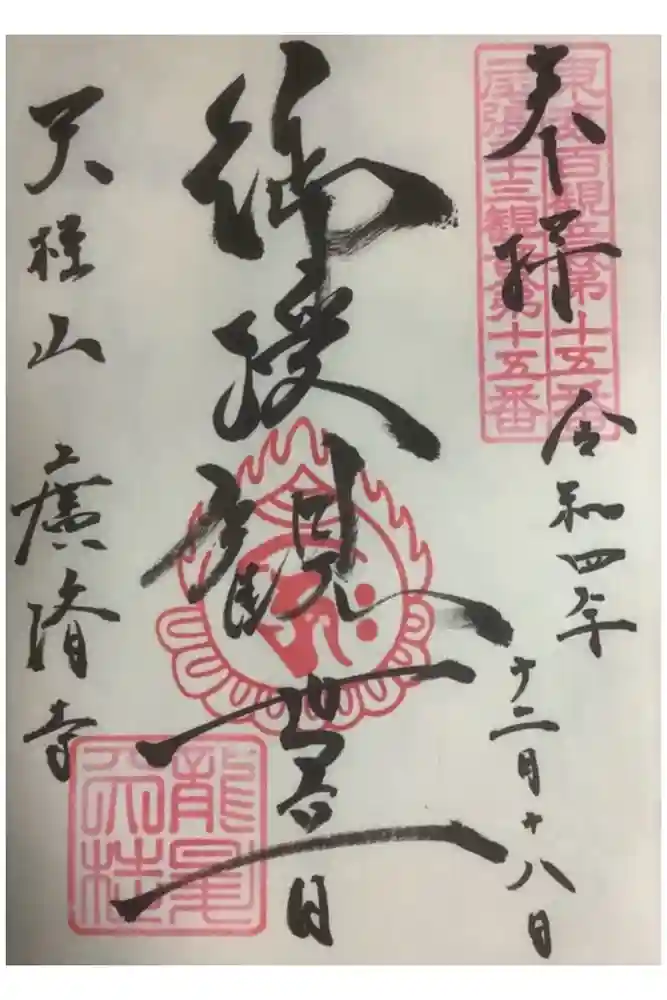 東海百観音第十五番
尾張三十三観音第十五番
奉拝
令和四年
十二月十八日
御授観世音
天柱山 廣済寺